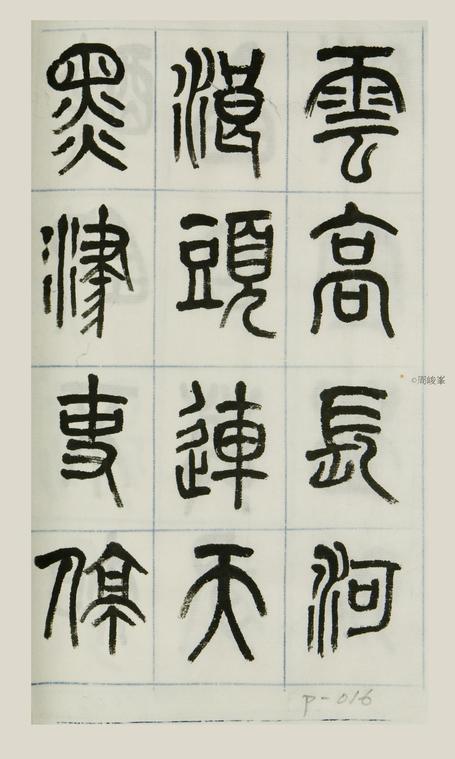 雲高長河
頭連天
黑津吏停
©周峻峯
P-016